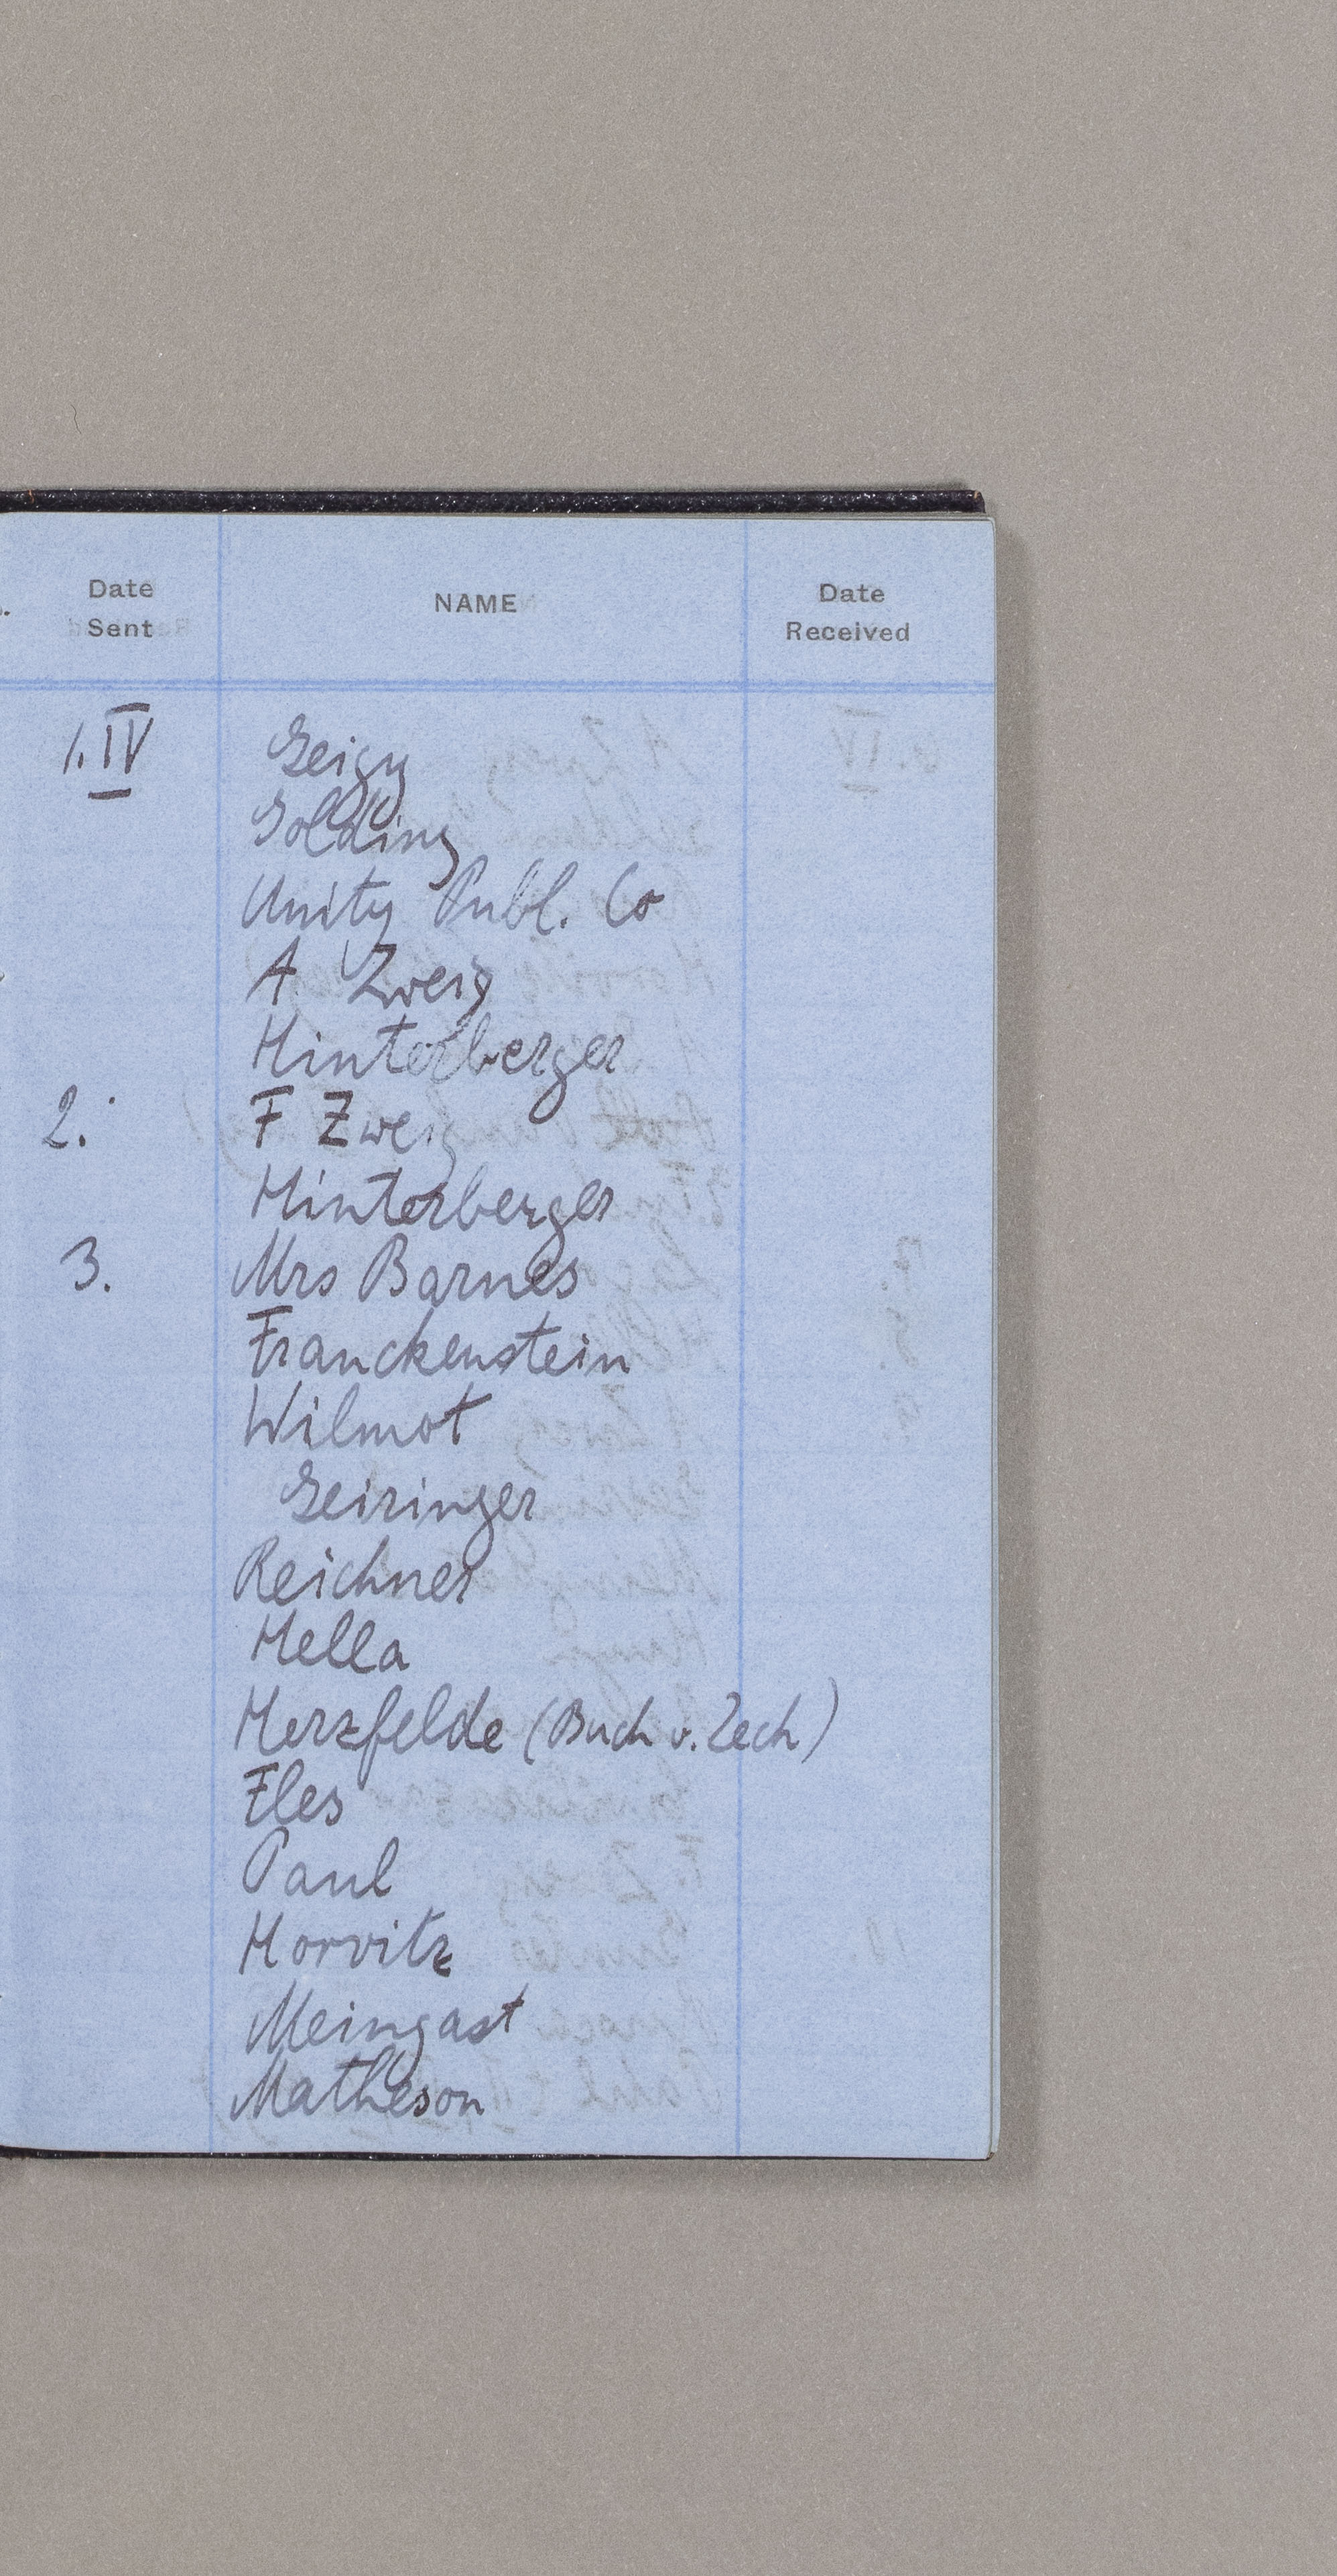 Date Sent NAME Date Received
1. IV Geigy
Golding
Unity Publ. Co
A Zweig
Hinterberger
2. F Zweig
Hinterberger
3. Mrs Barnes
Franckenstein
Wilmot
Geiringer
Reichner
Hella
Herzfelde (Buch v. Zech)
Eles
Paul
Horvitz
Meingast
Matheson